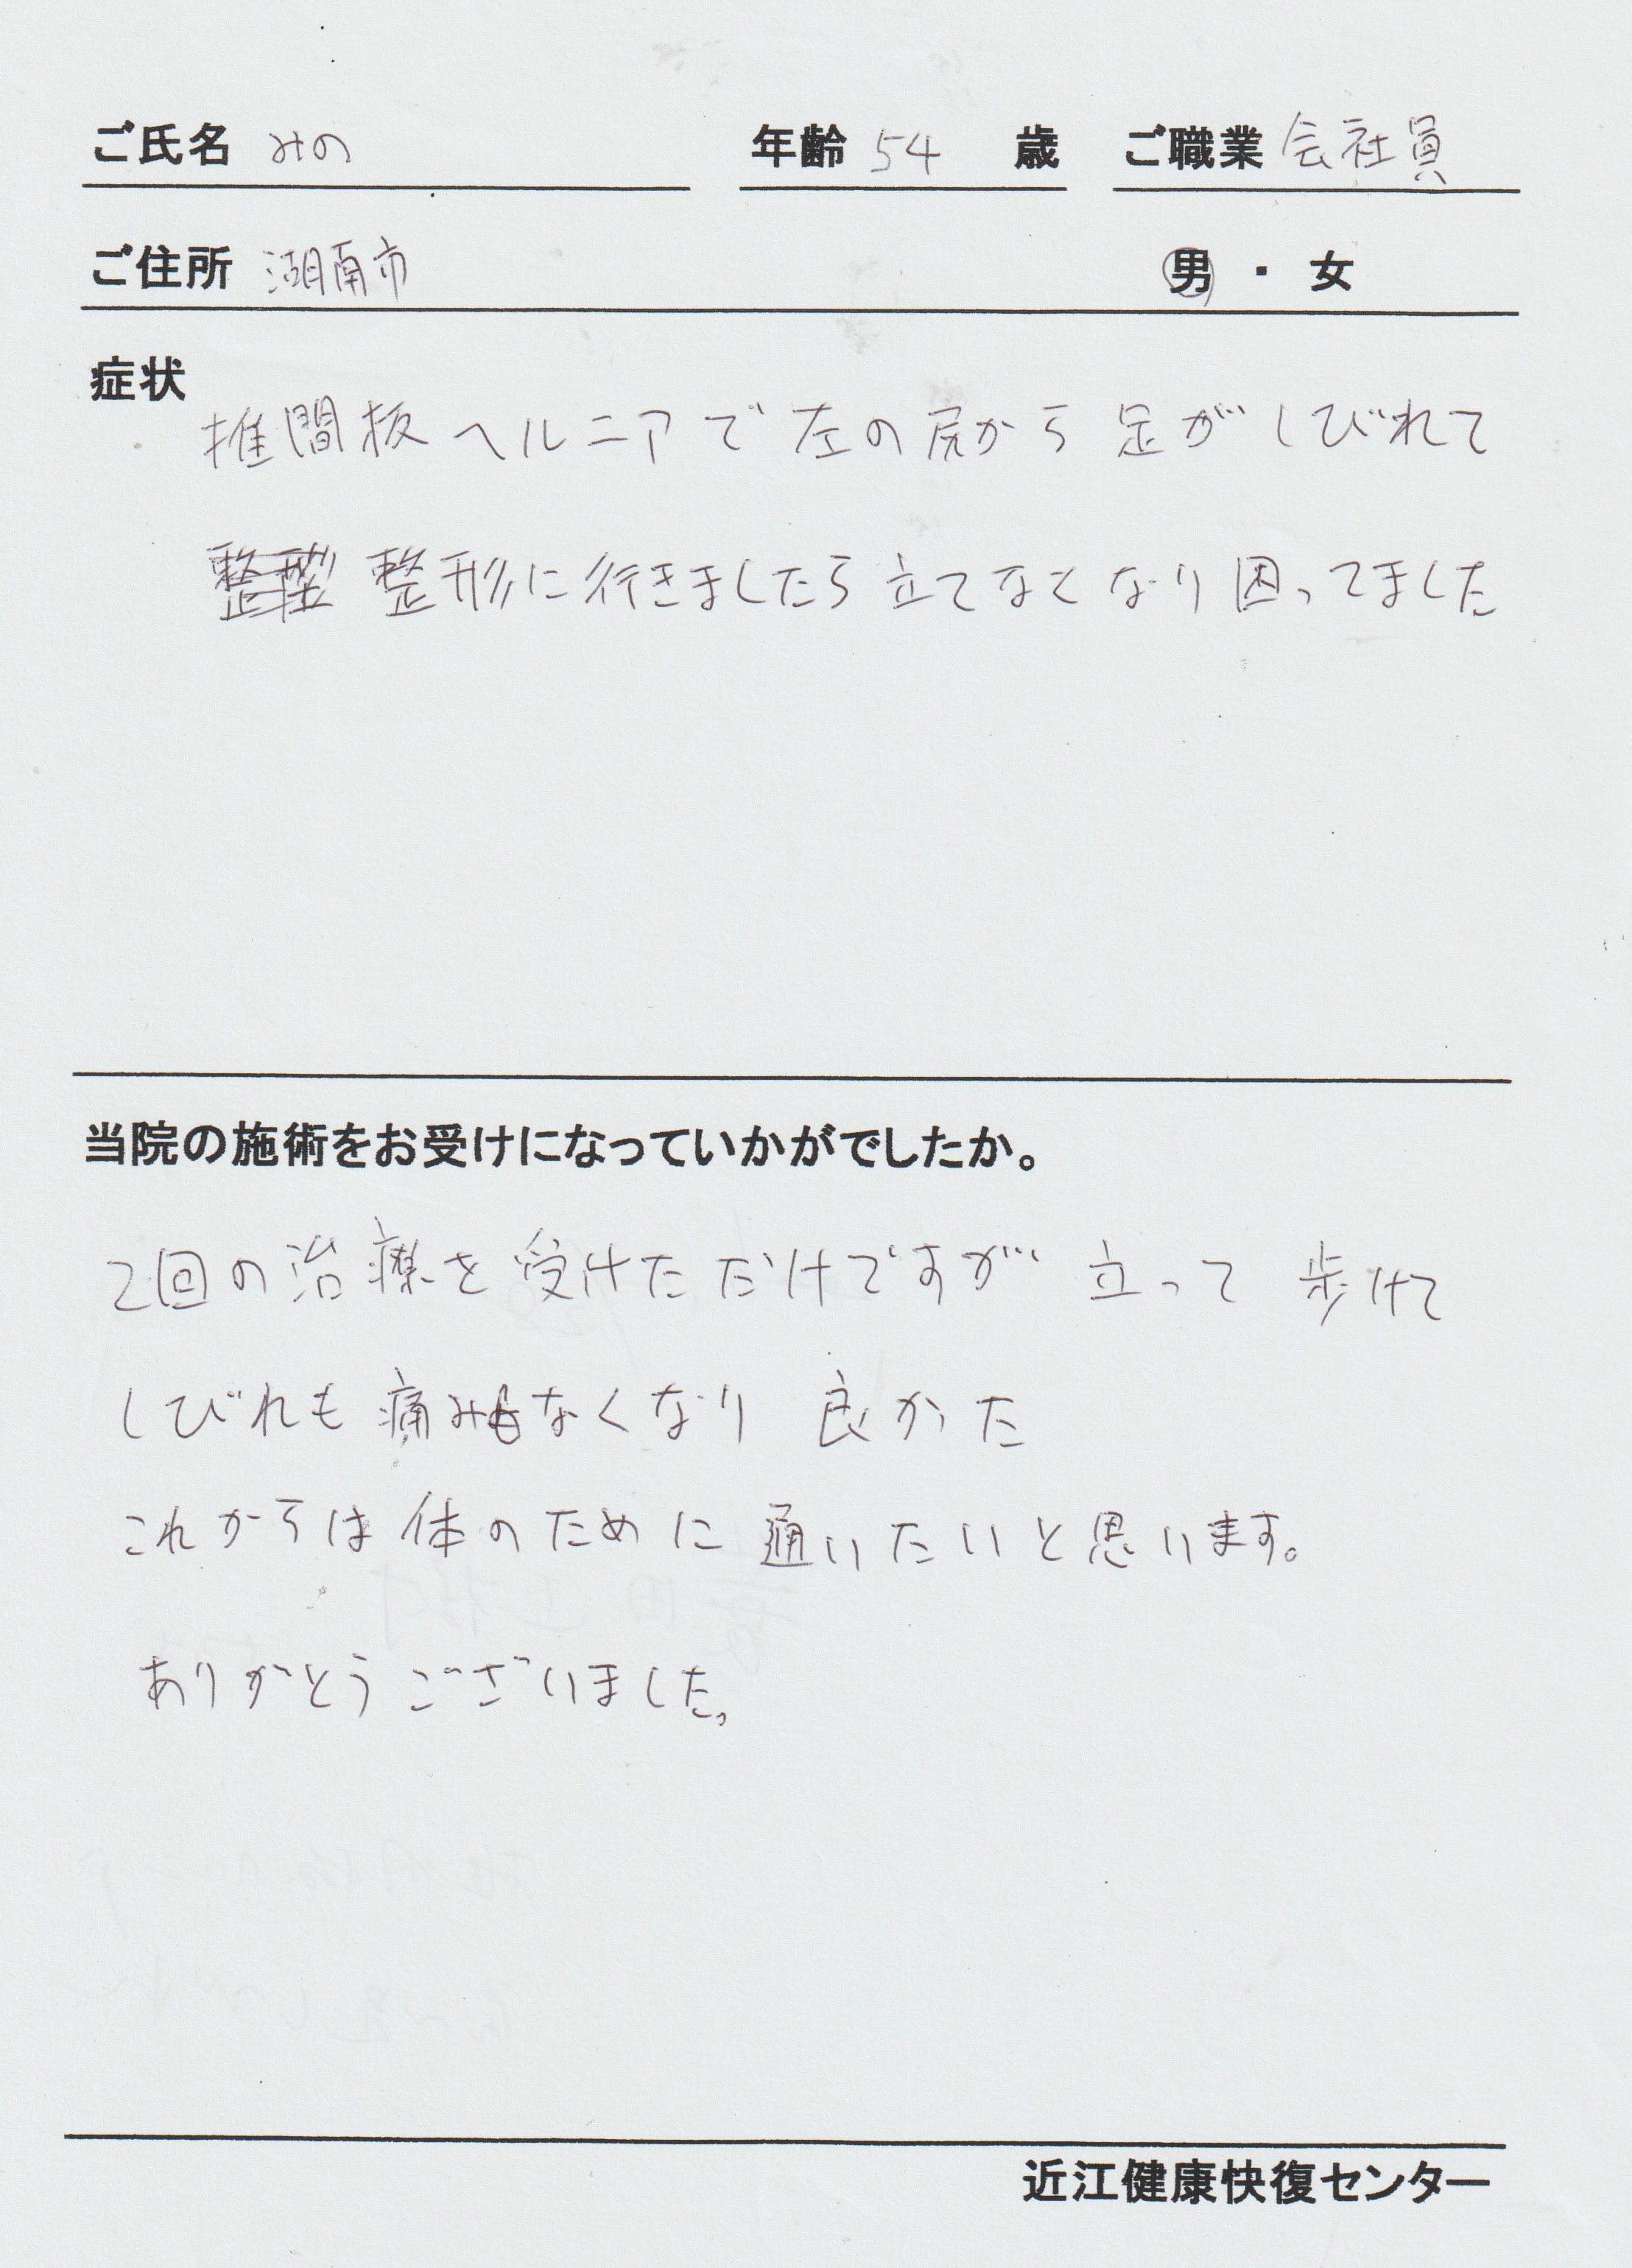 ご氏名 みの 年齢 54 歳 ご職業 会社員
ご住所 湖南市 男・女
症状
推間板ヘルニアで左の尻から足がしびれて
整形に行きましたら立てなくなり困ってました
当院の施術をお受けになっていかがでしたか。
2回の治療を受けただけですが立って歩けて
しびれも痛みもなくなり良かた
これからは体のために通いたいと思います。
ありがとうございました。
近江健康快復センター